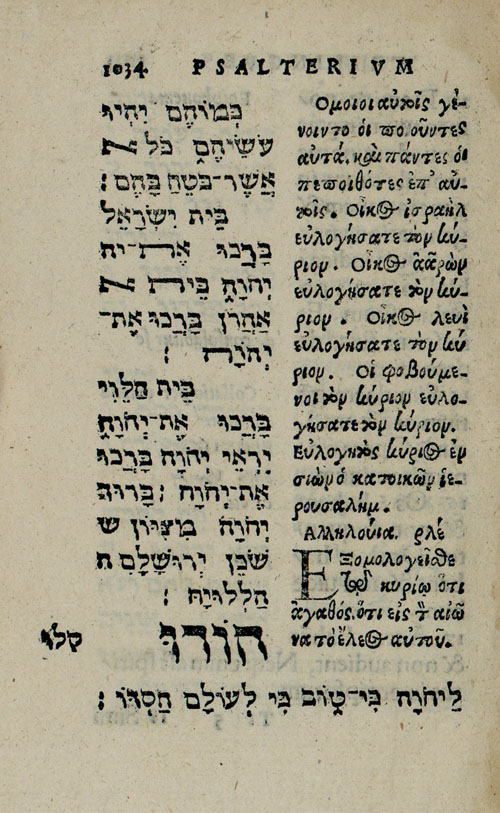 1034 PSALTERIVM
כְּמוֹהֶם יִהְיוּ
עֹשֵׂיהֶם כֹּל א
אֲשֶׁר־בֹּטֵחַ בָּהֶם׃
בֵּית יִשְׂרָאֵל
בָּרֲכוּ אֶת־יה
יְהוָה בֵּית א
אַהֲרֹן בָּרֲכוּ אֶת־
יְהוָה׃
בֵּית הַלֵּוִי
בָּרֲכוּ אֶת־יְהוָה
יִרְאֵי יְהוָה בָּרֲכוּ
אֶת־יְהוָה׃ בָּרוּךְ
יְהוָה מִצִּיּוֹן ש
שֹׁכֵן יְרוּשָׁלִָם ה
הַלְלוּיָהּ׃
הוֹדוּ
קלו
Ὅμοιοι αὐτοῖς γέ-
νοιντο οἱ ποιοῦντες
αὐτά, καὶ πάντες οἱ
πεποιθότες ἐπ' αὐ-
τοῖς. Οἶκος ἰσραὴλ
εὐλογήσατε τὸν κύ-
ριον. Οἶκος ἀαρὼν
εὐλογήσατε τὸν κύ-
ριον. Οἶκος λευὶ
εὐλογήσατε τὸν κύ
ριον. Οἱ φοβούμε-
νοι τὸν κύριον εὐλο-
γήσατε τὸν κύριον.
Εὐλογητὸς κύριος ἐν
σιὼν ὁ κατοικῶν ἱε-
ρουσαλήμ.
Αλληλούια. ρλέ
ΕΞομολογεῖσθε
τῷ κυρίῳ ὅτι
ἀγαθός, ὅτι εἰς τὸν αἰῶ
να τὸ ἔλεος αὐτοῦ.
לַיהוָה כִּי־טוֹב כִּי לְעוֹלָם חַסְדּוֹ׃